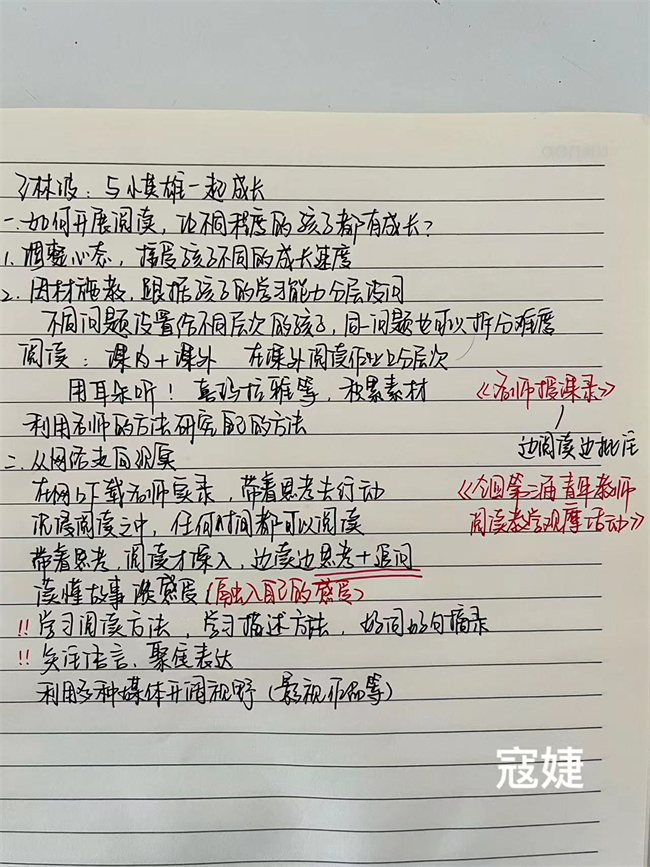 林波：与小英雄一起成长
一. 如何开展阅读，让不同程度的孩子都有成长？
1. 调整心态，接受孩子不同的成长速度
2. 因材施教，跟据孩子的学习能力分层设问
不同问题设置给不同层次的孩子，同一问题也可以拆分难度
阅读：课内+课外 在课外阅读作业上分层次
用耳朵听！喜玛拉雅等，积累素材
《名师授课录》
利用名师的方法研究自己的方法
边阅读边批注
二. 从网络走向现实
在网上下载名师实录，带着思考去行动
《全国第三届青年教师
沉浸阅读之中，任何时间都可以阅读
阅读教学观摩活动》
带着思考，阅读才深入，边读边思考+追问
读懂故事 谈感受（融入自己的感受）
!! 学习阅读方法，学习描述方法，好词好句摘录
!! 关注语言、聚焦表达
利用多种媒体开阔视野（影视作品等）
寇婕